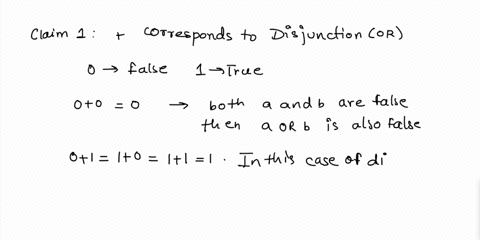 Claim 1 : + corresponds to Disjunction (OR)
0 → False 1 → True
0+0 = 0 → both a and b are false
then a OR b is also false
0+1 = 1+0 = 1+1 = 1 . In this case of di